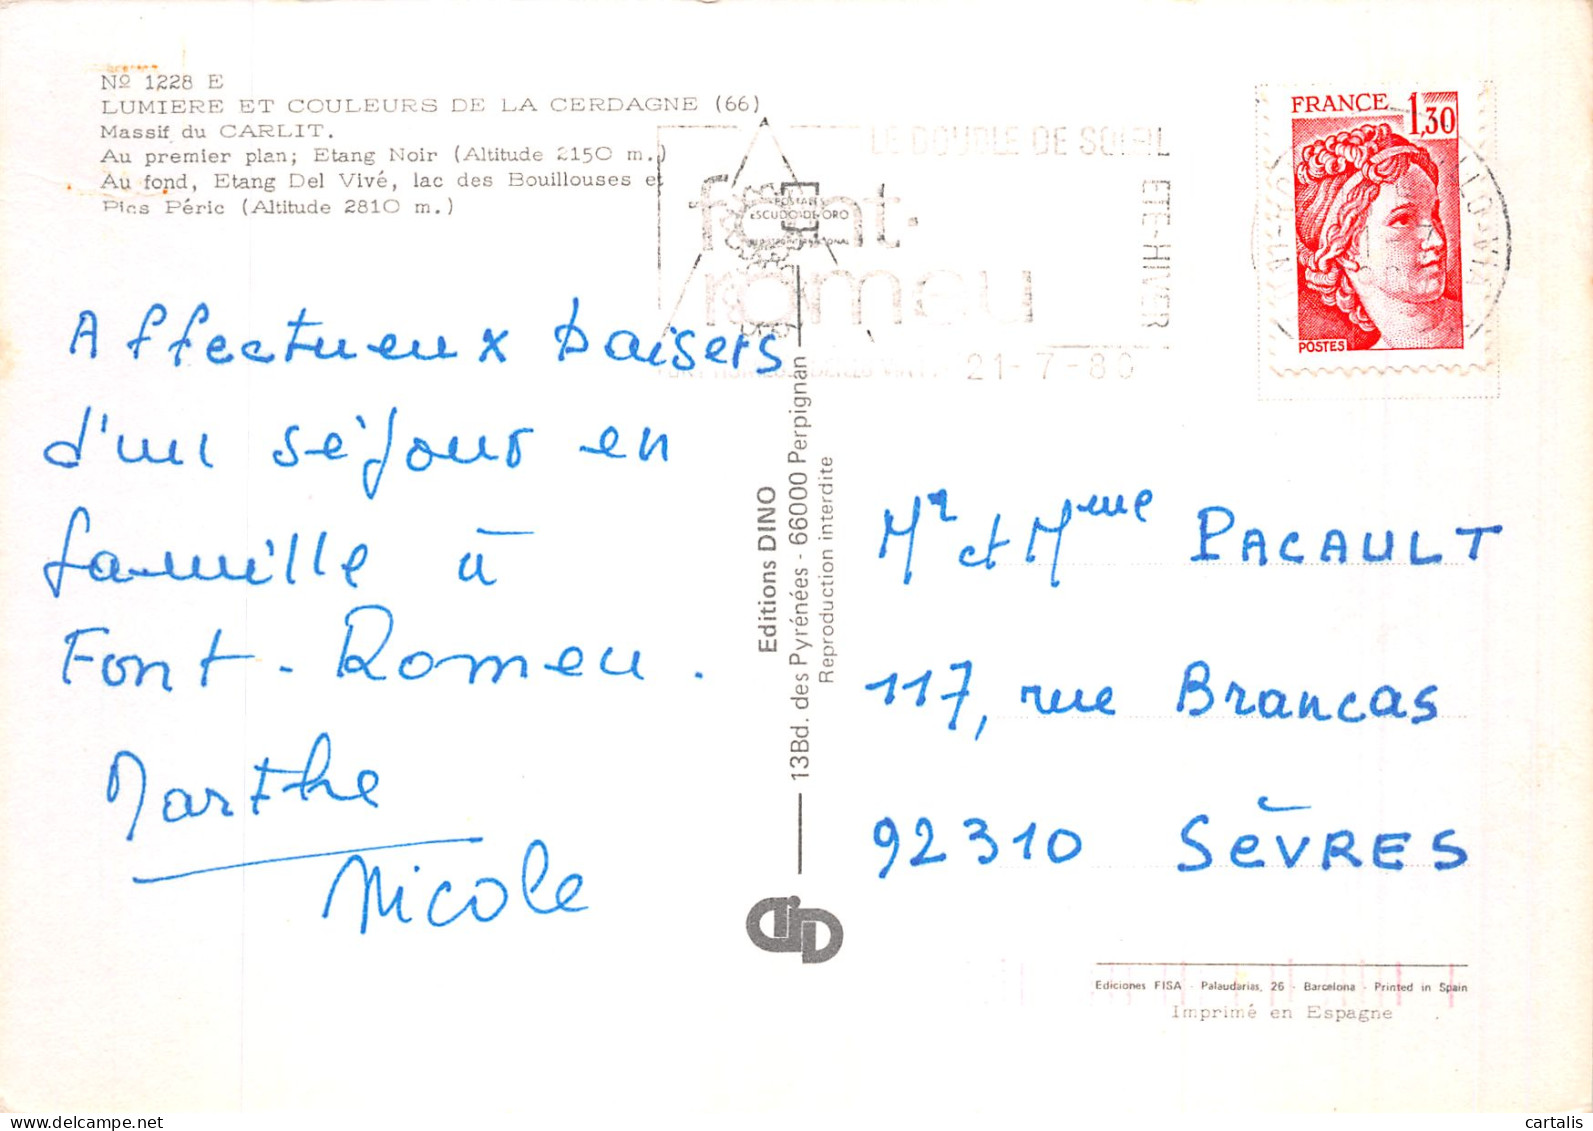 Nº 1228 E
LUMIERE ET COULEURS DE LA CERDAGNE (66)
Massif du CARLIT.
Au premier plan; Etang Noir (Altitude 2150 m.)
Au fond, Etang Del Vivé, lac des Bouillouses et
Pics Péric (Altitude 2810 m.)
LE DOUBLE DE SOLEIL
font-
romeu
ETE-HIVER
21-7-80
ESCUDO DE ORO
FRANCE 1,30
POSTES
Affectueux baisers
d'un séjour en
famille à
Font-Romeu.
Marthe
Nicole
Editions DINO
13Bd. des Pyrénées - 66000 Perpignan
Reproduction interdite
Mr et Mme PACAULT
117, rue Brancas
92310 SÈVRES
Ediciones FISA - Palaudarias, 26 - Barcelona - Printed in Spain
Imprimé en Espagne
cartalis
delcampe.net